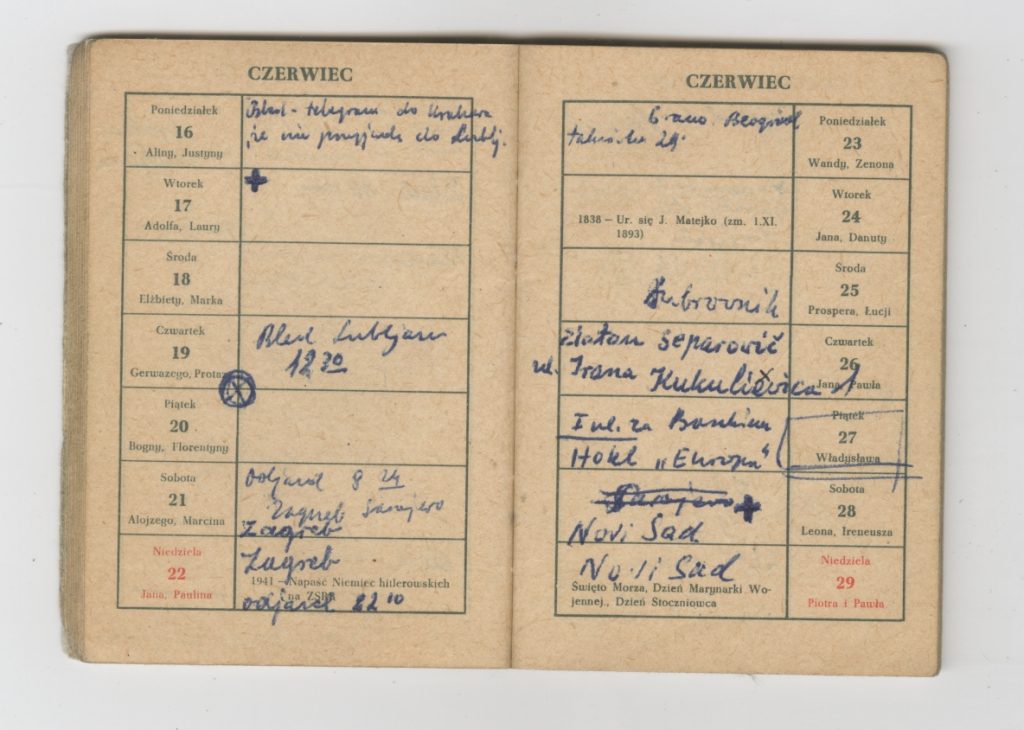 CZERWIEC
Poniedziałek
16
Aliny, Justyny
Bled - telegram do Krakowa
że nie przyjadę do Lublj.
Wtorek
17
Adolfa, Laury
Środa
18
Elżbiety, Marka
Czwartek
19
Gerwazego, Protaz
Bled Lubljana
12 30
Piątek
20
Bogny, Florentyny
Sobota
21
Alojzego, Marcina
Odjazd 8 24
Zagreb Sarajevo
Zagreb
Niedziela
22
Jana, Paulina
Zagreb
1941 — Napaść Niemiec hitlerowskich
na ZSRR
odjazd 22 10
CZERWIEC
Poniedziałek
23
Wandy, Zenona
Beograd
24.
Wtorek
24
Jana, Danuty
1838 — Ur. się J. Matejko (zm. 1.XI.
1893)
Środa
25
Prospera, Łucji
Dubrovnik
Czwartek
26
Jana, Pawła
Zlatan Separović
ul. Ivana Kukuljevića 1
Piątek
27
Władysława
I ul. za
Hotel „Europa"
Sobota
28
Leona, Ireneusza
Sarajevo
Novi Sad
Niedziela
29
Piotra i Pawła
Novi Sad
Święto Morza, Dzień Marynarki Wo-
jennej., Dzień Stoczniowca